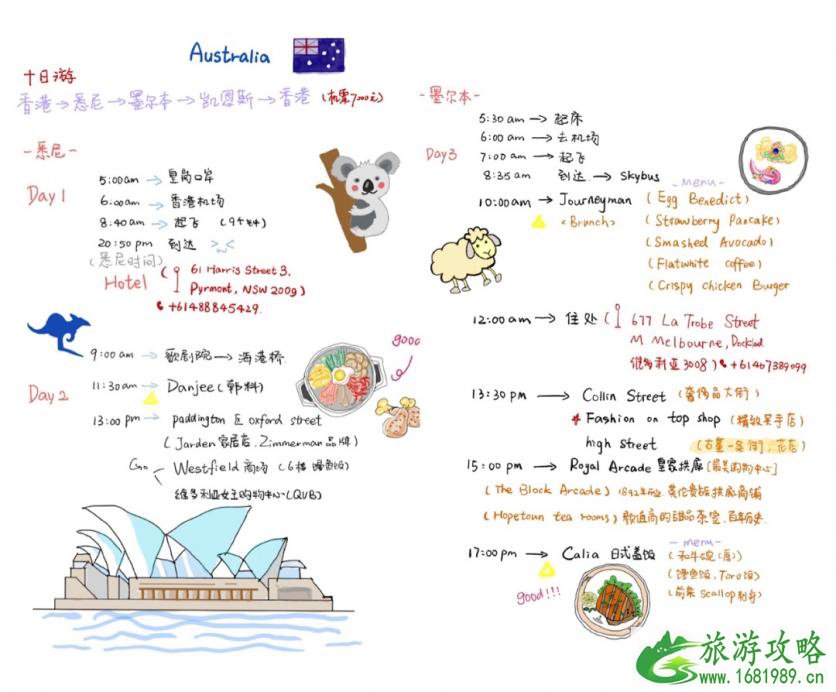 Australia
十日游
香港→悉尼→墨尔本→凯恩斯→香港 (机票7000元)
-悉尼-
Day 1
5:00am → 皇岗口岸
6:00am → 香港机场
8:40am → 起飞
20:50 pm 到达
(悉尼时间)
Hotel ( 61 Harris Street 3,
Pyrmont, NSW 2009 )
+61488845429.
Day 2
9:00 am → 歌剧院 → 海港桥
11:30am → Danjee (韩料)
good
13:00 pm → paddington 区 oxford street
(Jarden 家居店. Zimmerman 品牌)
Westfield 商场 (6楼 鳗鱼饭)
维多利亚女王购物中心 (QVB)
-墨尔本-
Day 3
5:30 am → 起床
6:00 am → 去机场
7:00 am → 起飞
8:35 am 到达 → Skybus
-menu-
10:00am → Journeyman ( Egg Benedict )
<Brunch> ( Strawberry Pancake )
( Smashed Avocado )
( Flatwhite coffee )
( Crispy chicken Burger
12:00am → 住处 ( 677 La Trobe Street
M Melbourne,
维多利亚 3008 ) +61467389099
13:30 pm → Collin Street (奢侈品大街)
* Fashion on top shop
high street (古董一条街, 花店)
15:00 pm → Royal Arcade 皇家拱廊 [最美购物中心]
(The Block Arcade) 1892年
(Hopetoun tea rooms) 甜品茶室. 百年历史.
-menu-
17:00 pm → Calia 日式盖饭
good!!!
(鳗鱼饭, Toro饭)
(前菜 Scallop 刺身)
旅游攻略
www.1681989.cn